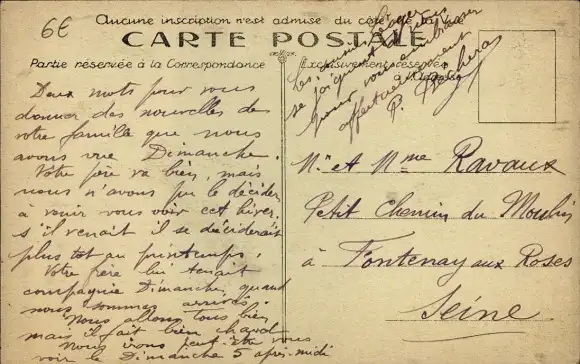 6E
Aucune inscription n'est admise du côté de la Vue
CARTE POSTALE
Partie réservée à la Correspondance
Exclusivement réservée
à l'Adresse
Deux mots pour vous
donner des nouvelles de
votre famille que nous
avons vue Dimanche.
Votre père va bien, mais
nous n'avons pu le décider
à venir vous voir cet hiver.
s'il venait il se déciderait
plus tôt au printemps.
Votre frère lui tenait
compagnie Dimanche, quand
nous sommes arrivés.
Nous allons tous bien
mais il fait bien chaud
Nous irons peut-être vous
voir le Dimanche 5 après-midi
Les
se joignent à
pour vous embrasser
affectueusement
P.
Mr et Mme Ravaux
Petit Chemin du Moulin
à Fontenay aux Roses
Seine